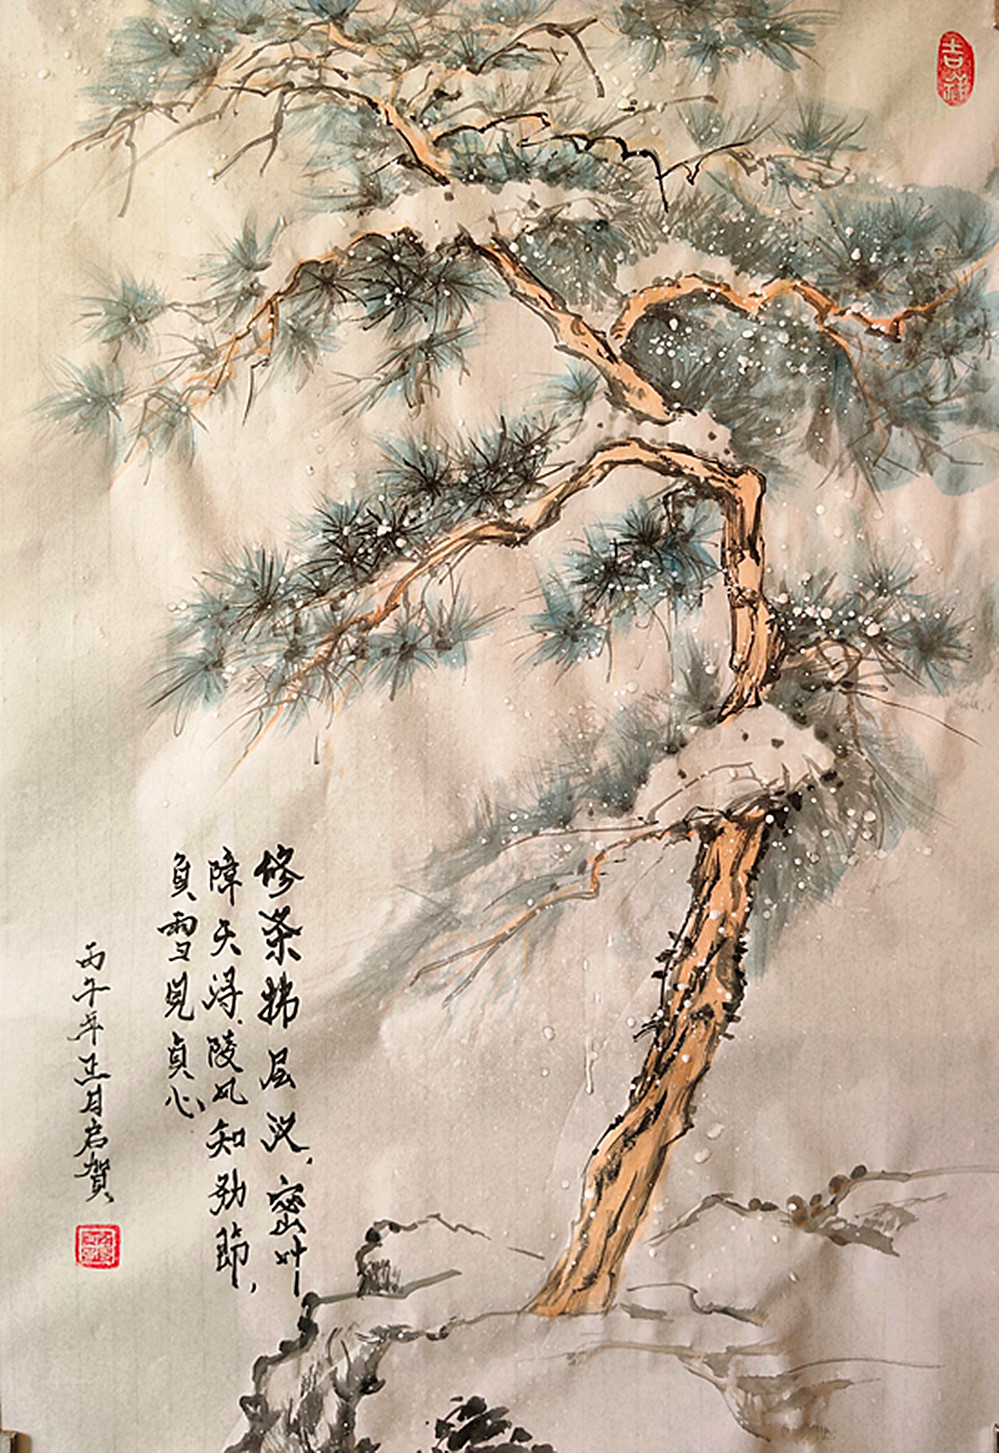 吉祥
修条拂层汉、密叶
障天浔、陵风知劲節,
負雪見貞心
丙午年正月启賀